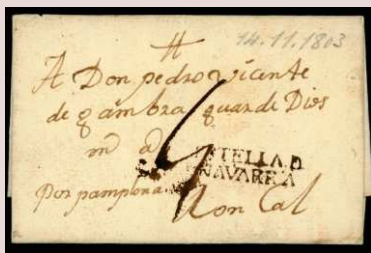 14.11.1803
A Don pedro vicente
de gambra guarde Dios
m a
4
STELLA.D
NAVARRA
Por pamplona
Roncal